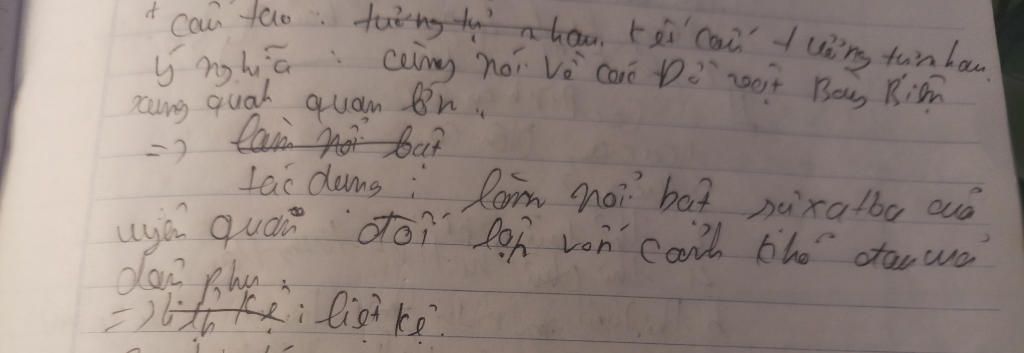 + Cấu tạo : tương tự nhau. kết cấu tương tự nhau.
ý nghĩa : cùng nói về các Đồ vật Bày Biện
xung quanh quan lớn.
=> làm nổi bật
tác dụng : làm nổi bật sự xa hoa của
quan đối lập với cảnh khổ đau của
dân phu.
=> : liệt kê.